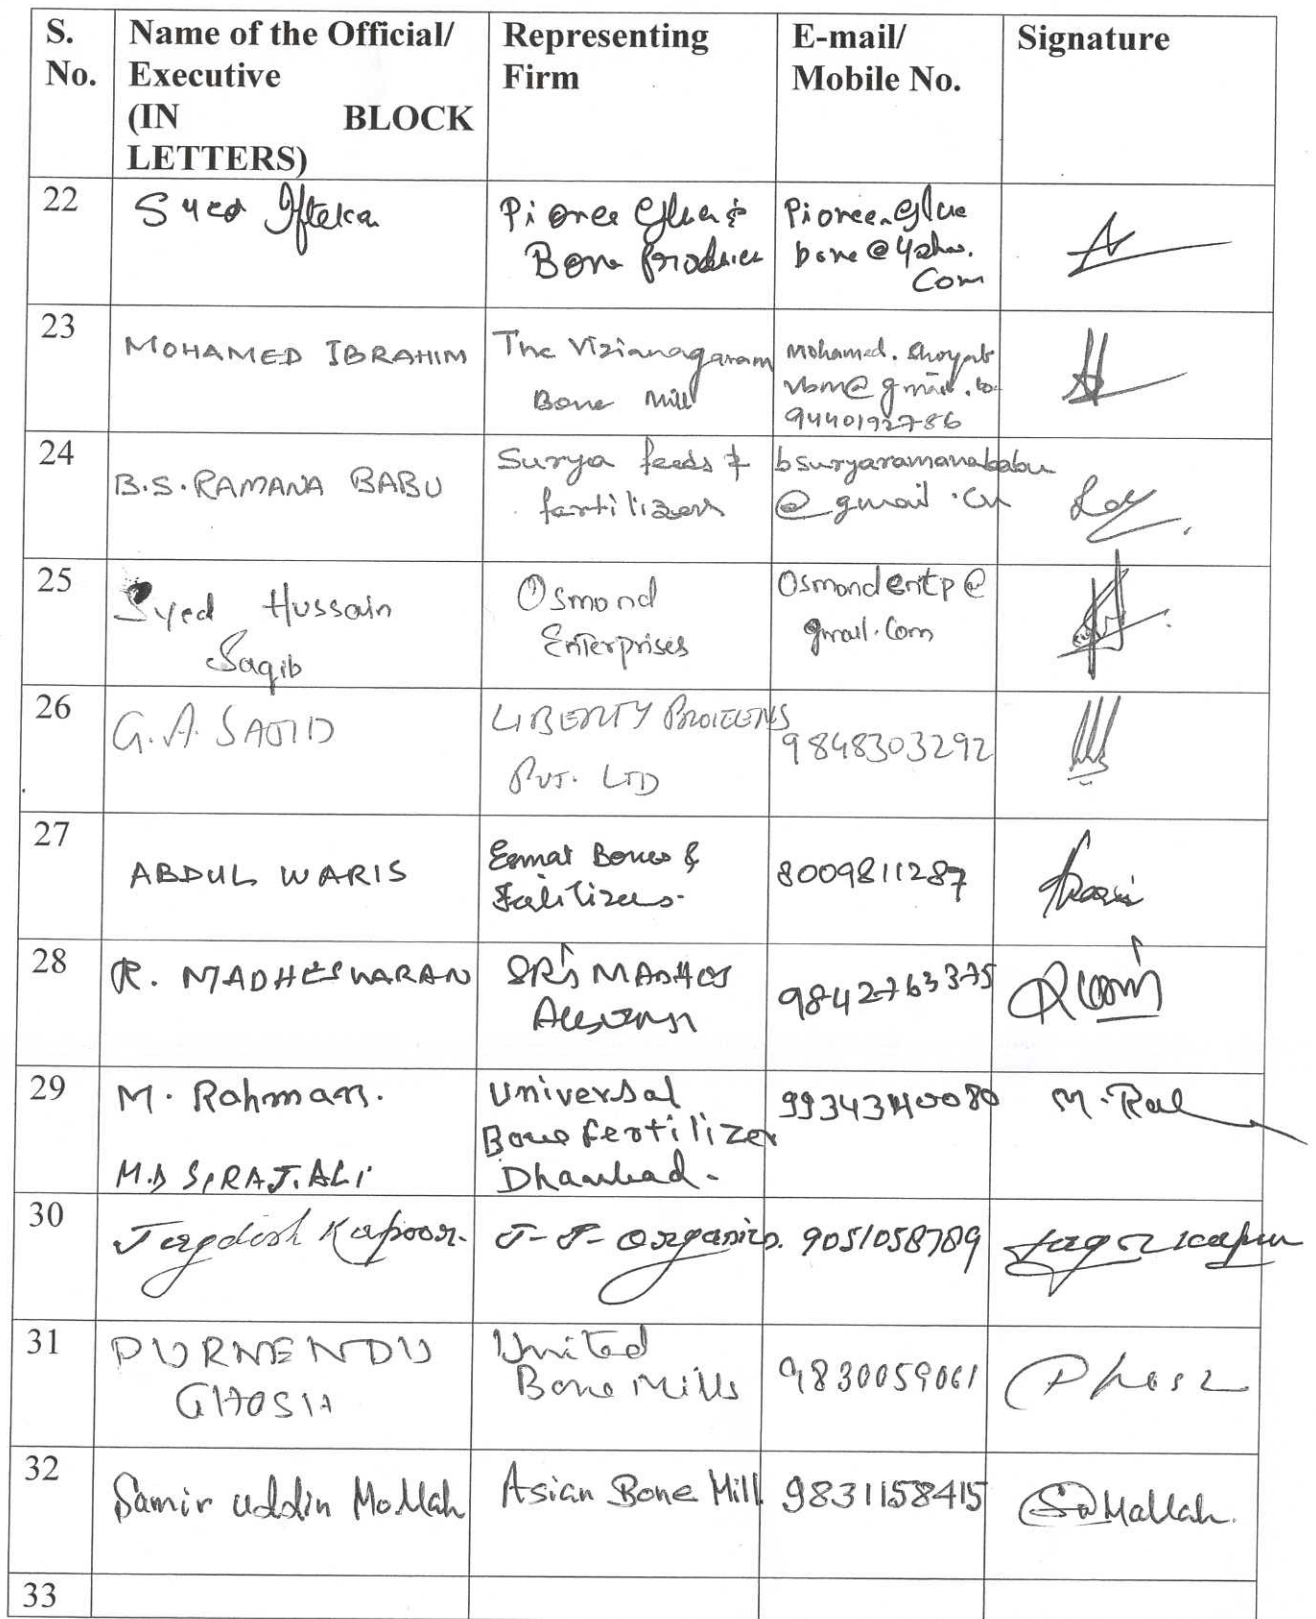 S. No.
Name of the Official/
Executive
(IN BLOCK
LETTERS)
Representing
Firm
E-mail/
Mobile No.
Signature
22
Syed Ifteka
Pioneer Glue &
Bone Products
Pioneer.glue
bone@yahoo.
Com
23
MOHAMED IBRAHIM
The Vizianagaram
Bone Mill
mohamed.shoyab
vbm@gmail.co
9440192786
24
B.S. RAMANA BABU
Surya feeds &
fertilizers
bsuryaramanababu
@gmail.
25
Syed Hussain
Saqib
Osmond
Enterprises
Osmondentp@
gmail.com
26
G.A. SAJID
LIBERTY PROTEENS
PVT. LTD
9848303292
27
ABDUL WARIS
Bones &
8009811287
28
R. MADHESWARAN
SRI MADHES
9842763375
29
M. Rahman.
M.D SIRAJ. ALI
Universal
Bone fertilizer
Dhanbad.
M. Ral
30
Jagdish Kapoor.
J-J- Organics.
9051058789
31
PURNENDU
GHOSH
United
Bone Mills
9830059061
32
Samir uddin Mollah
Asian Bone Mill
9831158415
Mallah.
33